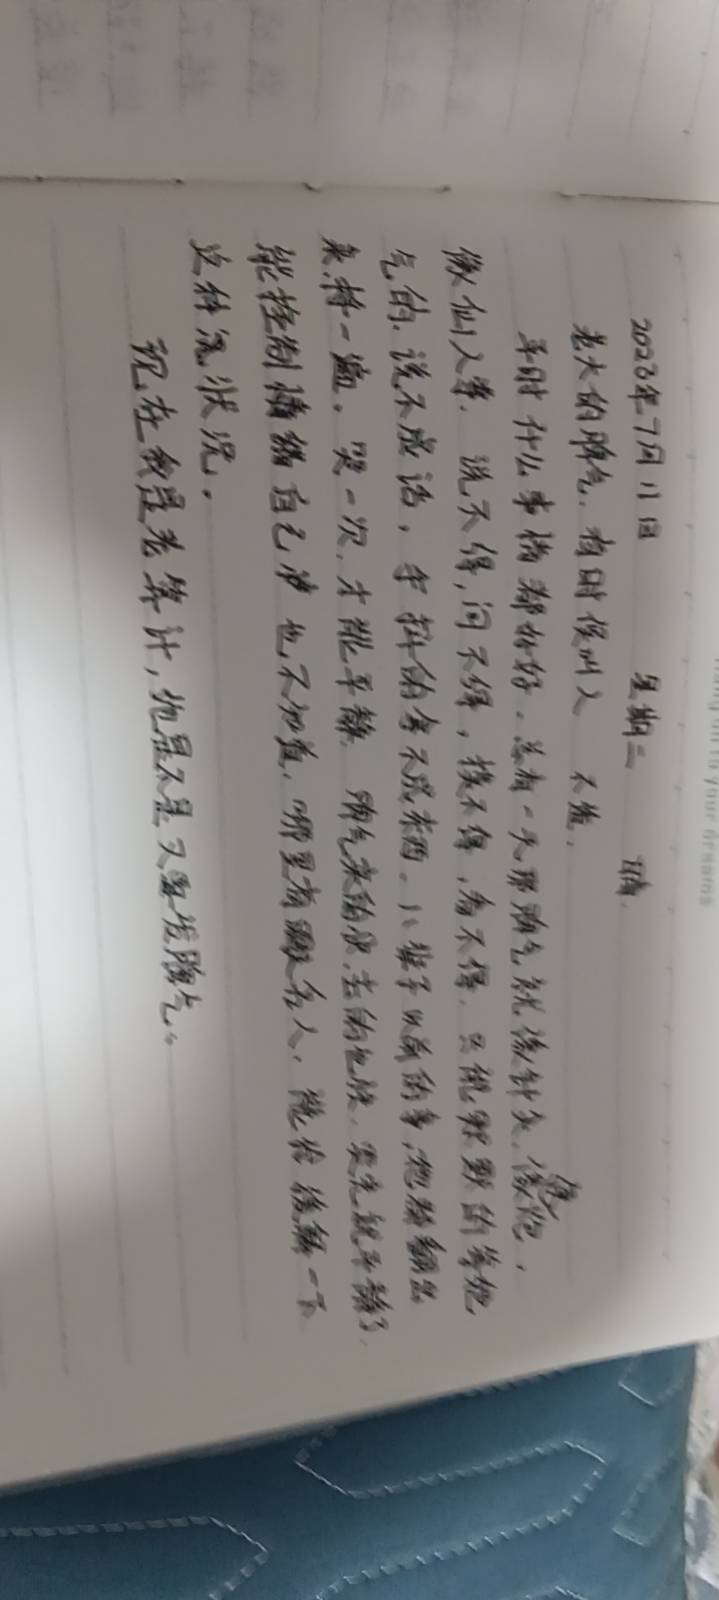 2023年7月11日 星期二 晴.
老大的脾气.有时候叫人 不值.
平时什么事情都好好.总有一天那脾气就像针灸.像炮,
像仙人掌.说不得,问不得,挨不得,看不得.只能默默的等他
气的.说不成话,手抖的拿不成东西.八辈子以前的事,他都翻出
来.捋一遍.哭一次.才能平静.脾气来的快.去的也快.哭完就平静了.
能控制情绪自己 也不知道.哪里有 名人.能给缓解一下
这种况状况.
现在我是老算计,他是不是又要发脾气。
Hang on to your dreams